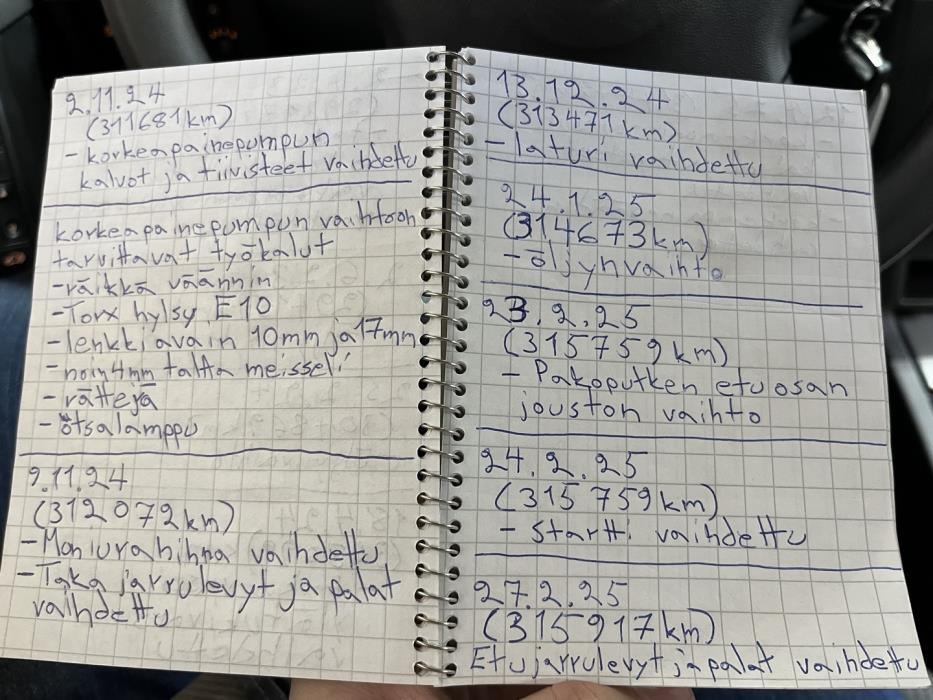 2.11.24
(311681km)
- korkeapainepumpun
kalvot ja tiivisteet vaihdettu
korkeapainepumpun vaihtoon
tarvittavat työkalut
- räikkä väännin
- Torx hylsy E10
- lenkkiavain 10mm ja 17mm
- noin 4mm taltta meisseli
- rättejä
- otsalamppu
9.11.24
(312072km)
- Moniurahihna vaihdettu
- Taka jarrulevyt ja palat
vaihdettu
13.12.24
(313471km)
- laturi vaihdettu
24.1.25
(314673km)
- öljynvaihto
23.2.25
(315759km)
- Pakoputken etuosan
jouston vaihto
24.2.25
(315759km)
- Startti vaihdettu
27.2.25
(315917km)
Etu jarrulevyt ja palat vaihdettu